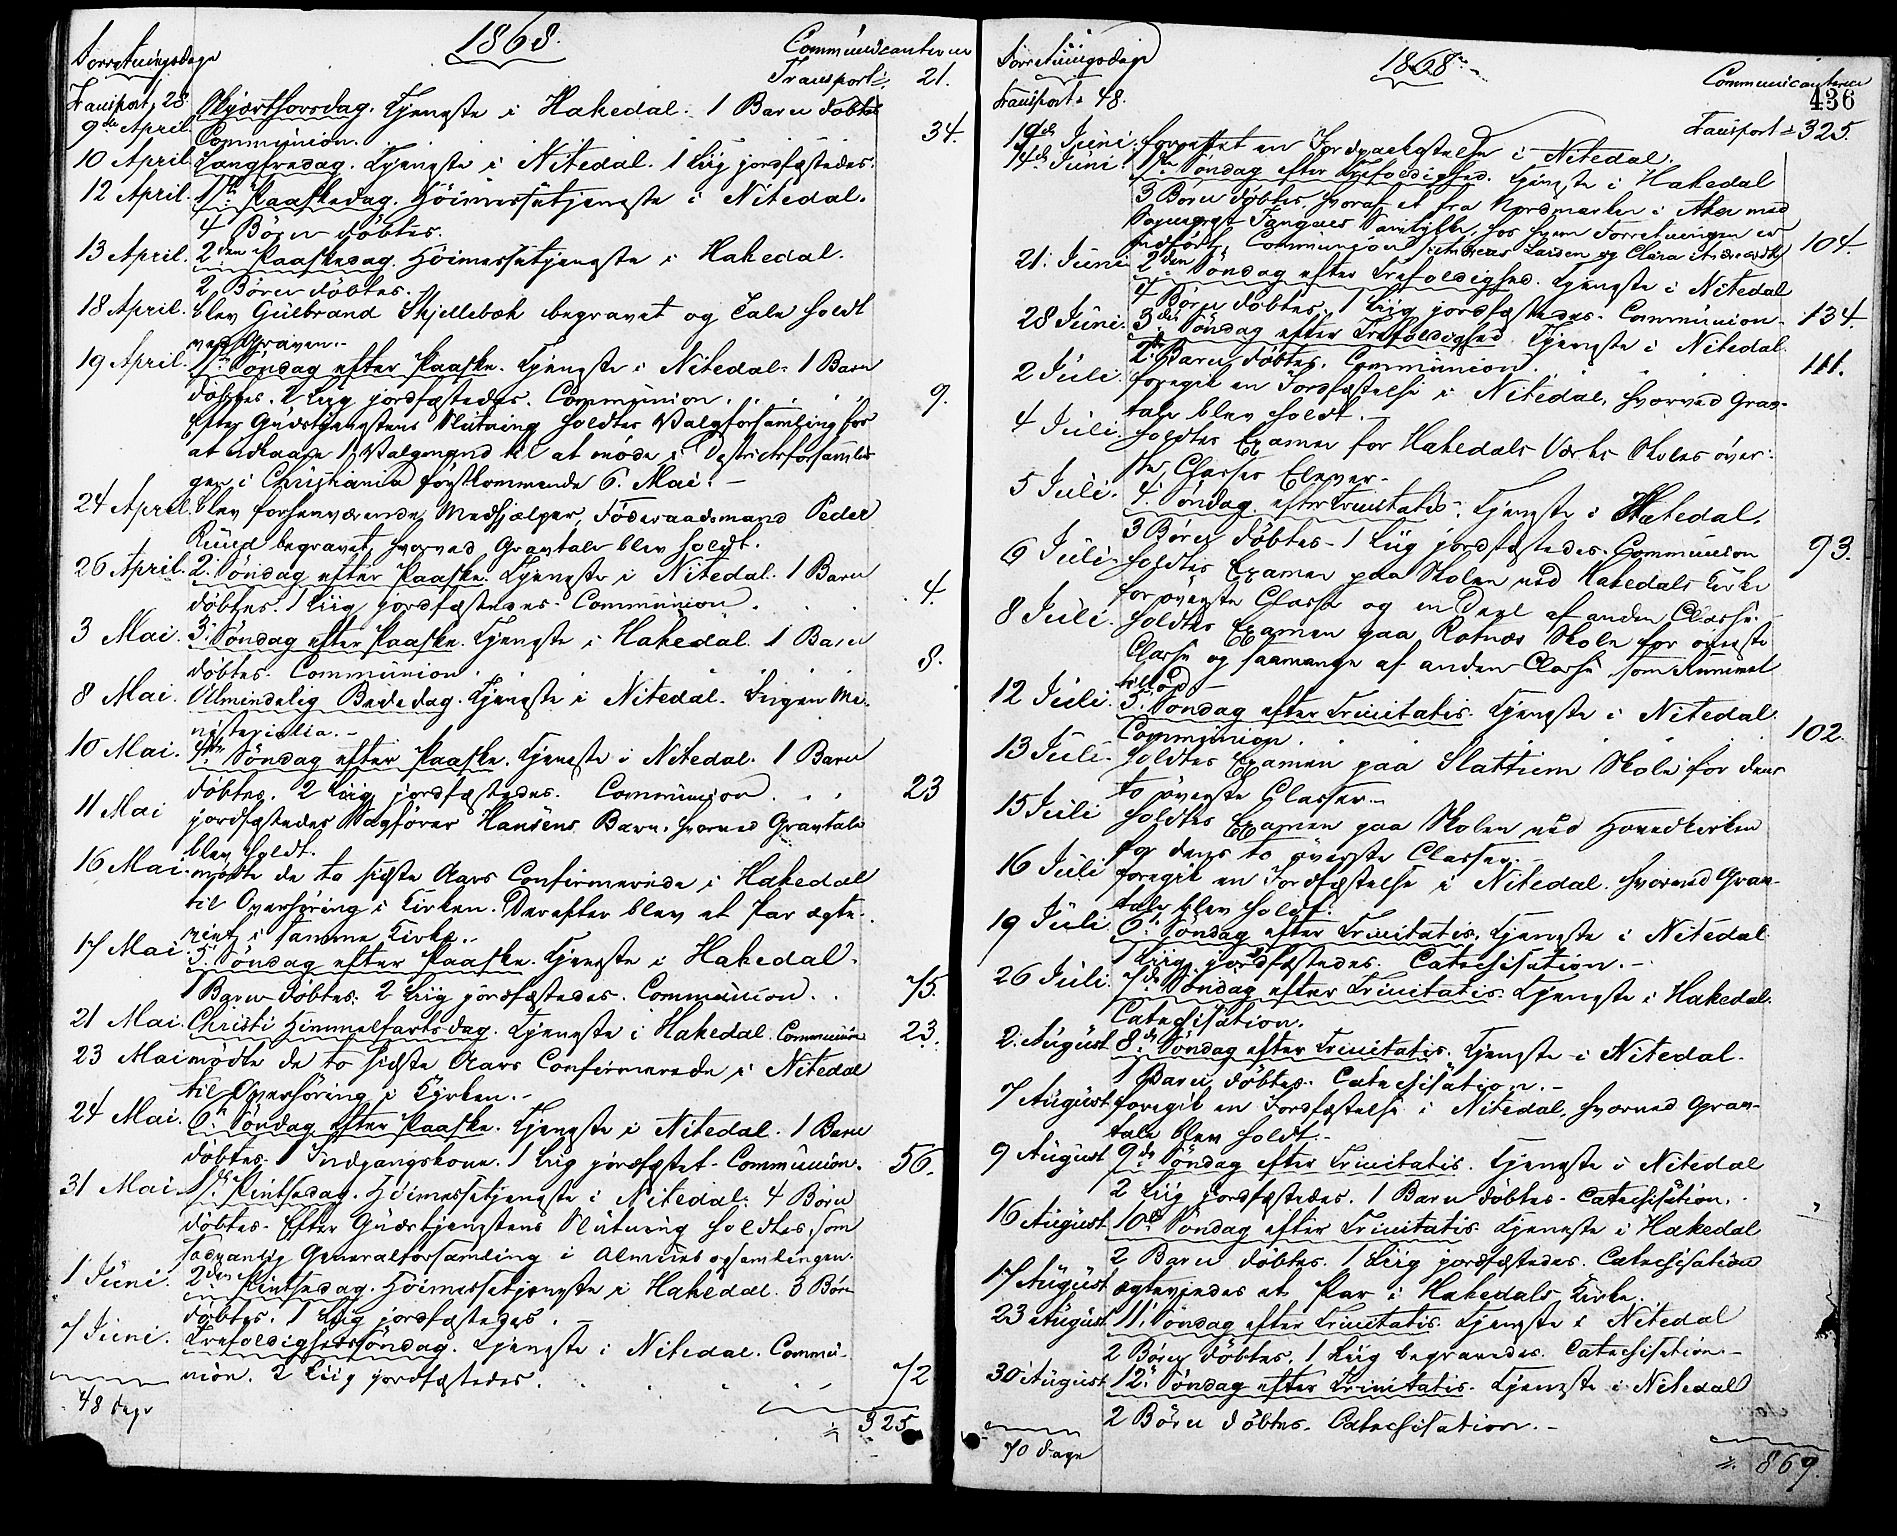 Forretningsdage
1868.
Communicanterne
Transport: 21.
Transport, 28
9de April. Skjærthorsdag. Tjeneste i Hakedal. 1 Barn döbtes
Communion. 34.
10 April. Langfredag. Tjeneste i Nitedal. 1 Liig jordfæstedes.
12 April. 1ste Paaskedag. Höimessetjeneste i Nitedal.
4 Börn döbtes.
13 April. 2den Paaskedag. Höimessetjeneste i Hakedal.
2 Börn döbtes.
18 April. blev Gulbrand Skjellebæk begravet og Tale holdt
ved Graven.-
19 April. 1ste Söndag efter Paaske. Tjeneste i Nitedal. 1 Barn
döbtes. 2 Liig jordfæstedes. Communion. 9.
Efter Gudstjenestens Slutning holdtes Valgforsamling for
at udkaare 1 Valgmand til at möde i Distriktsforsamlin-
gen i Christiania förstkommende 6. Mai. -
24 April. blev forhenværende Medhjælper, Föderaadsmand Peder
Ruud begravet, hvorved Gravtale blev holdt.
26 April. 2. Söndag efter Paaske. Tjeneste i Nitedal. 1 Barn
döbtes. 1 Liig jordfæstedes. Communion. 4.
3 Mai. 3. Söndag efter Paaske. Tjeneste i Hakedal. 1 Barn
döbtes. Communion. 8.
8 Mai. Almindelig Bededag. Tjeneste i Nitedal. Ingen Mi-
nisterialia. -
10 Mai. 4de Söndag efter Paaske. Tjeneste i Nitedal. 1 Barn
döbtes. 2 Liig jordfæstedes. Communion. 23
11 Mai jordfæstedes Sagförer Hansens Barn, hvorved Gravtale
blev holdt.
16 Mai. mödte de to sidste Aars Confirmerede i Hakedal
til Overhöring i Kirken. Derefter blev et Par ægte-
viet i samme Kirke.-
17 Mai 5. Söndag efter Paaske. Tjeneste i Hakedal.
1 Barn döbtes. 2 Liig jordfæstedes. Communion. 75.
21 Mai. Christi Himmelfartsdag. Tjeneste i Hakedal. Communion 23.
23 Mai mödte de to sidste Aars Confirmerede i Nitedal
til Overhöring i Kirken.-
24 Mai. 6te Söndag efter Paaske. Tjeneste i Nitedal. 1 Barn
döbtes. 1 Indgangskone. 1 Liig jordfæstet. Communion. 56.
31 Mai. 1ste Pintsedag. Höimessetjeneste i Nitedal. 4 Börn
döbtes. Efter Gudstjenestens Slutning holdtes som
sedvanlig Generalforsamling i Almuebogsamlingen.
1 Juni. 2den Pintsedag. Höimessetjeneste i Hakedal. 3 Börn
döbtes. 1 Liig jordfæstedes.
7 Juni. Trefoldighedssöndag. Tjeneste i Nitedal. Commu-
nion. 2 Liig jordfæstedes. 72
48 dage
325
Forretningsdage
1868.
Communicanterne
436
Transport 48.
Transport 325.
12de Juni. forrettet en Jordpaakastelse i Nitedal.
14de Juni. 1ste Söndag efter Trefoldighed. Tjeneste i Hakedal
3 Börn döbtes, hvoraf et fra Nordmarken i Aker med
Sognepræst Samtykke, hos hvem Forretningen er
indfört, Communion. Andreas Larsen og Clara 104.
21. Juni 2den Söndag efter Trefoldighed. Tjeneste i Nitedal
4 Börn döbtes. 1 Liig jordfæstedes. Communion. 134.
28 Juni. 3die Söndag efter Trefoldighed. Tjeneste i Nitedal.
2 Barn döbtes. Communion. 111.
2 Juli. foregik en Jordfæstelse i Nitedal, hvorved Grav-
tale blev holdt.
4 Juli. holdtes Examen for Hakedals Værks Skoles över-
ste Classes Elever.-
5 Juli. 4. Söndag efter Trinitatis. Tjeneste i Hakedal.
3 Börn döbtes. 1 Liig jordfæstedes. Communion 93.
6 Juli. holdtes Examen paa Skolen ved Hakedals Kirke
for överste Classe og en Deel af anden Classe.
8 Juli. holdtes Examen paa Rotnæs Skole for överste
Classe og saamange af anden Classe som Rummet
tillod.
12 Juli. 5. Söndag efter Trinitatis. Tjeneste i Nitedal.
Communion. 102.
13 Juli. holdtes Examen paa Slattum Skole for dens
to överste Classer.-
15 Juli holdtes Examen paa Skolen ved Hovedkirken
for dens to överste Classer.-
16 Juli foregik en Jordfæstelse i Nitedal, hvorved Grav-
tale blev holdt.
19 Juli 6. Söndag efter Trinitatis. Tjeneste i Nitedal
1 Liig jordfæstedes. Catechisation.-
26 Juli. 7de Söndag efter Trinitatis. Tjeneste i Hakedal.
Catechisation.
2. August 8de Söndag efter Trinitatis. Tjeneste i Nitedal.
1 Barn döbtes. Catechisation.-
7 August foregik en Jordfæstelse i Nitedal, hvorved Grav-
tale blev holdt.-
9 August 9de Söndag efter Trinitatis. Tjeneste i Nitedal
2 Liig jordfæstedes. 1 Barn döbtes. Catechisation.
16 August 10de Söndag efter Trinitatis. Tjeneste i Hakedal
2 Barn döbtes. 1 Liig jordfæstedes. Catechisation
17 August ægteviedes et Par i Hakedals Kirke.
23 August 11. Söndag efter Trinitatis. Tjeneste i Nitedal
2 Börn döbtes. 1 Liig begravedes. Catechisation.-
30 August 12. Söndag efter Trinitatis. Tjeneste i Nitedal
2 Börn döbtes. Catechisation.-
70 dage
869.